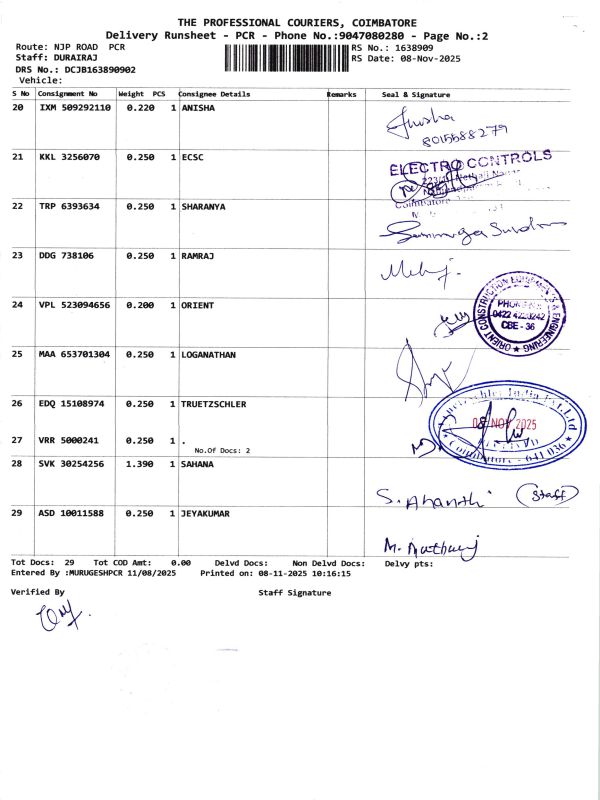 THE PROFESSIONAL COURIERS, COIMBATORE
Delivery Runsheet - PCR - Phone No.:9047080280 - Page No.:2
Route: NJP ROAD PCR
RS No.: 1638909
Staff: DURAIRAJ
RS Date: 08-Nov-2025
DRS No.: DCJB163890902
Vehicle:
S No Consignment No Weight PCS Consignee Details Remarks Seal & Signature
20 IXM 509292110 0.220 1 ANISHA
Anisha
8015588279
21 KKL 3256070 0.250 1 ECSC
ELECTRO CONTROLS
Coimbatore
22 TRP 6393634 0.250 1 SHARANYA
23 DDG 738106 0.250 1 RAMRAJ
24 VPL 523094656 0.200 1 ORIENT
ORIENT CONSTRUCTION EQUIPMENTS & ENGINEERING
PHONE No:
0422 4220242
CBE - 36
25 MAA 653701304 0.250 1 LOGANATHAN
26 EDQ 15108974 0.250 1 TRUETZSCHLER
Truetzschler India Pvt.Ltd
08 NOV 2025
RECEIVED
Coimbatore - 641 036
27 VRR 5000241 0.250 1 .
No.Of Docs: 2
28 SVK 30254256 1.390 1 SAHANA
S. Ananthi (Staff)
29 ASD 10011588 0.250 1 JEYAKUMAR
Tot Docs: 29 Tot COD Amt: 0.00 Delvd Docs: Non Delvd Docs: Delvy pts:
Entered By :MURUGESHPCR 11/08/2025 Printed on: 08-11-2025 10:16:15
Verified By Staff Signature